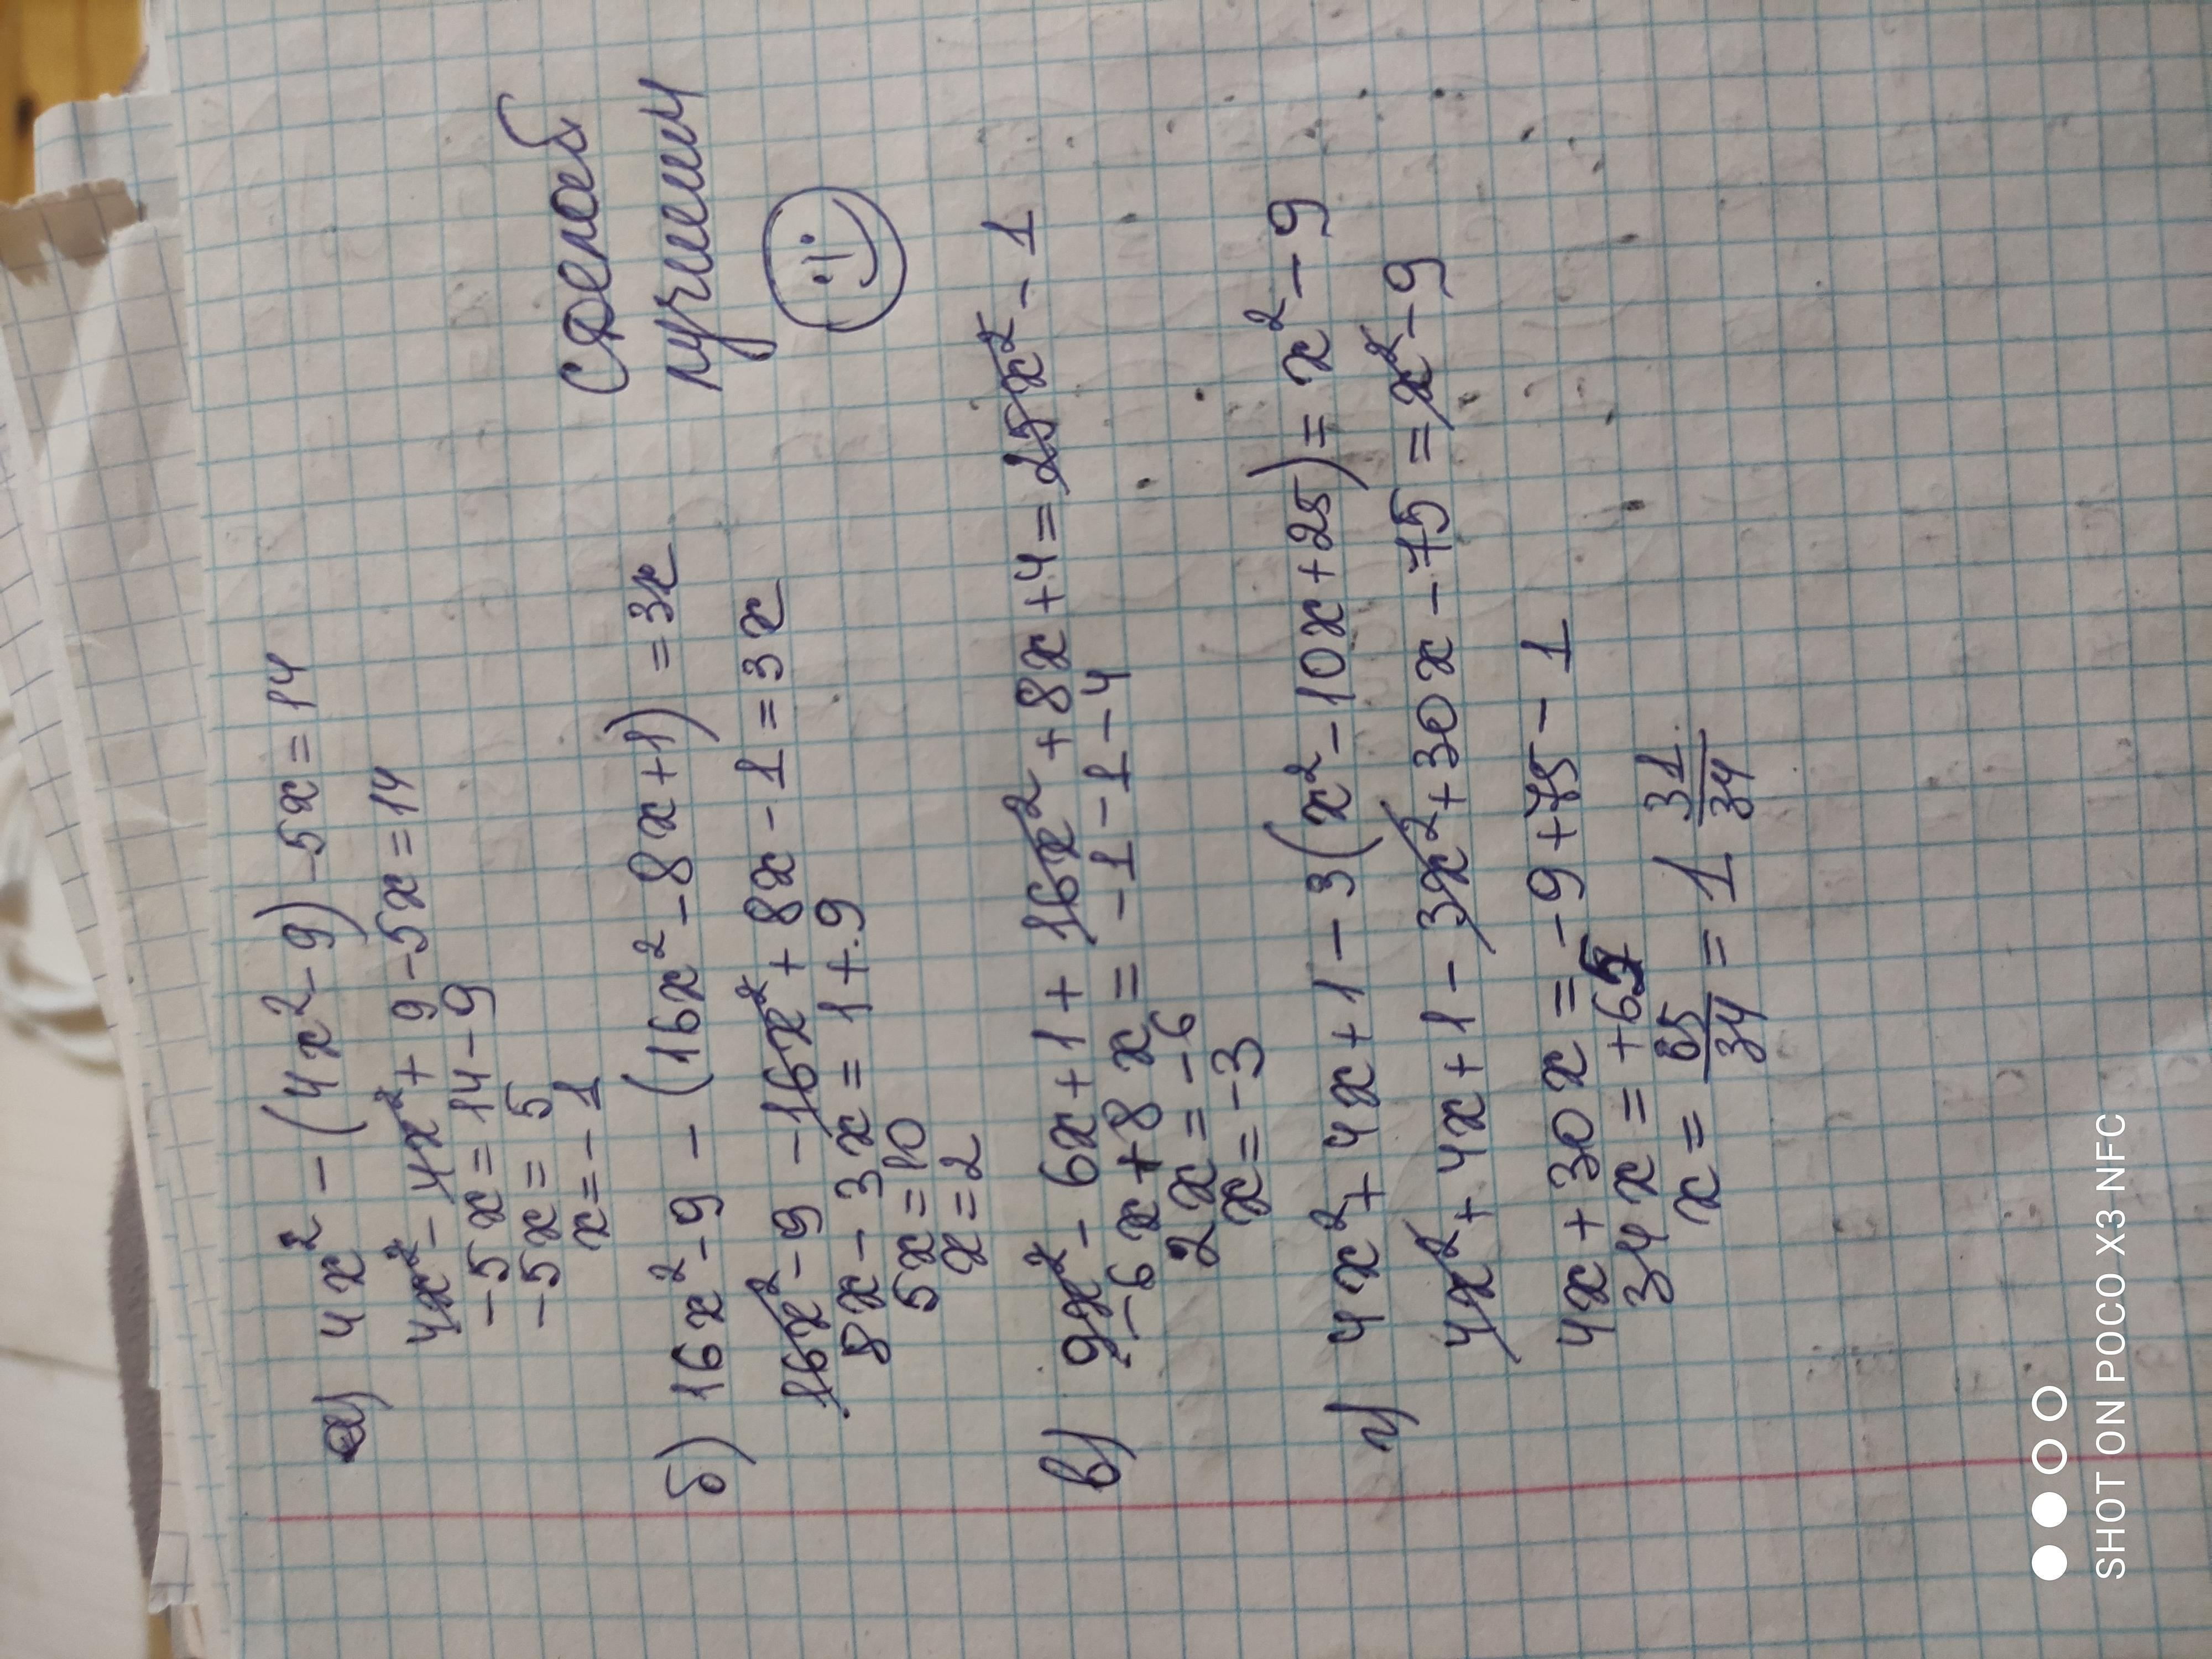 а) 4x² - (4x² - 9) - 5x = 14
4x² - 4x² + 9 - 5x = 14
-5x = 14 - 9
-5x = 5
x = -1
Сделаю
лучшим
б) 16x² - 9 - (16x² - 8x + 1) = 3x
16x² - 9 - 16x² + 8x - 1 = 3x
8x - 3x = 1 + 9
5x = 10
x = 2
в) 9x² - 6x + 1 + 16x² + 8x + 4 = 25x² - 1
-6x + 8x = -1 - 1 - 4
2x = -6
x = -3
г) 4x² + 4x + 1 - 3(x² - 10x + 25) = x² - 9
4x² + 4x + 1 - 3x² + 30x - 75 = x² - 9
4x + 30x = -9 + 75 - 1
34x = +65
x = 65/34 = 1 31/34
SHOT ON POCO X3 NFC